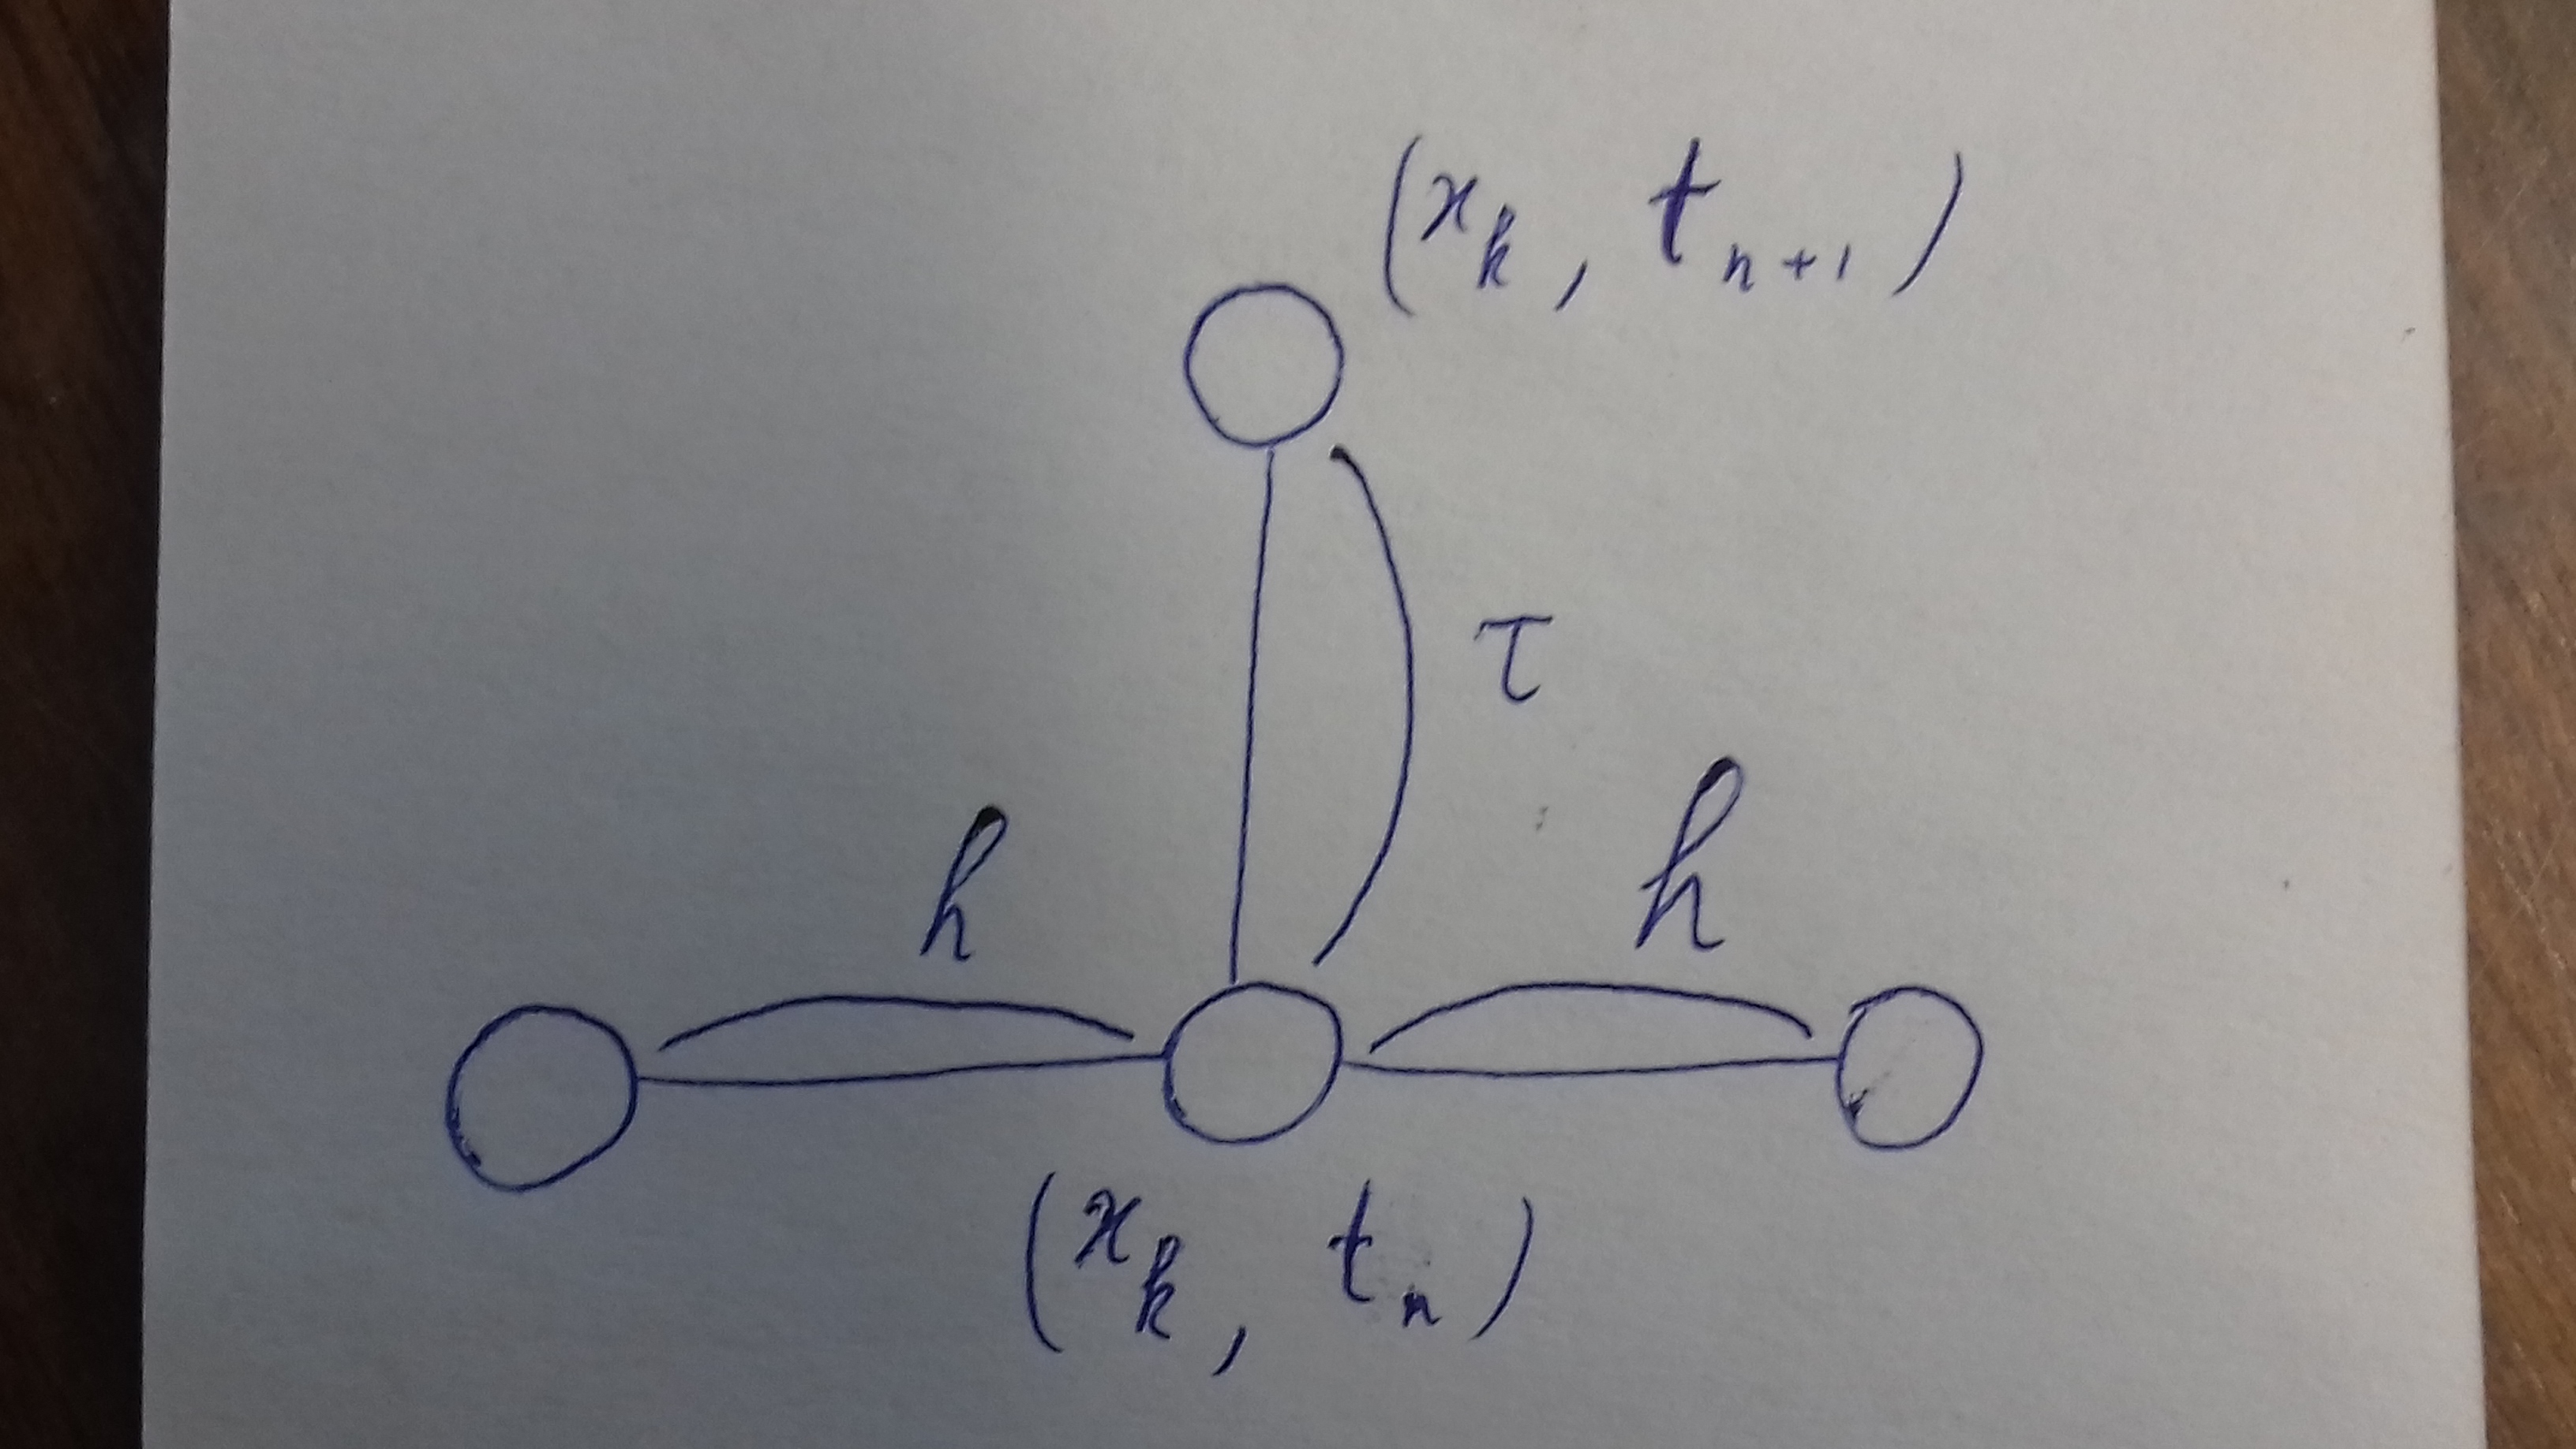 (x_k, t_{n+1})
τ
h h
(x_k, t_n)